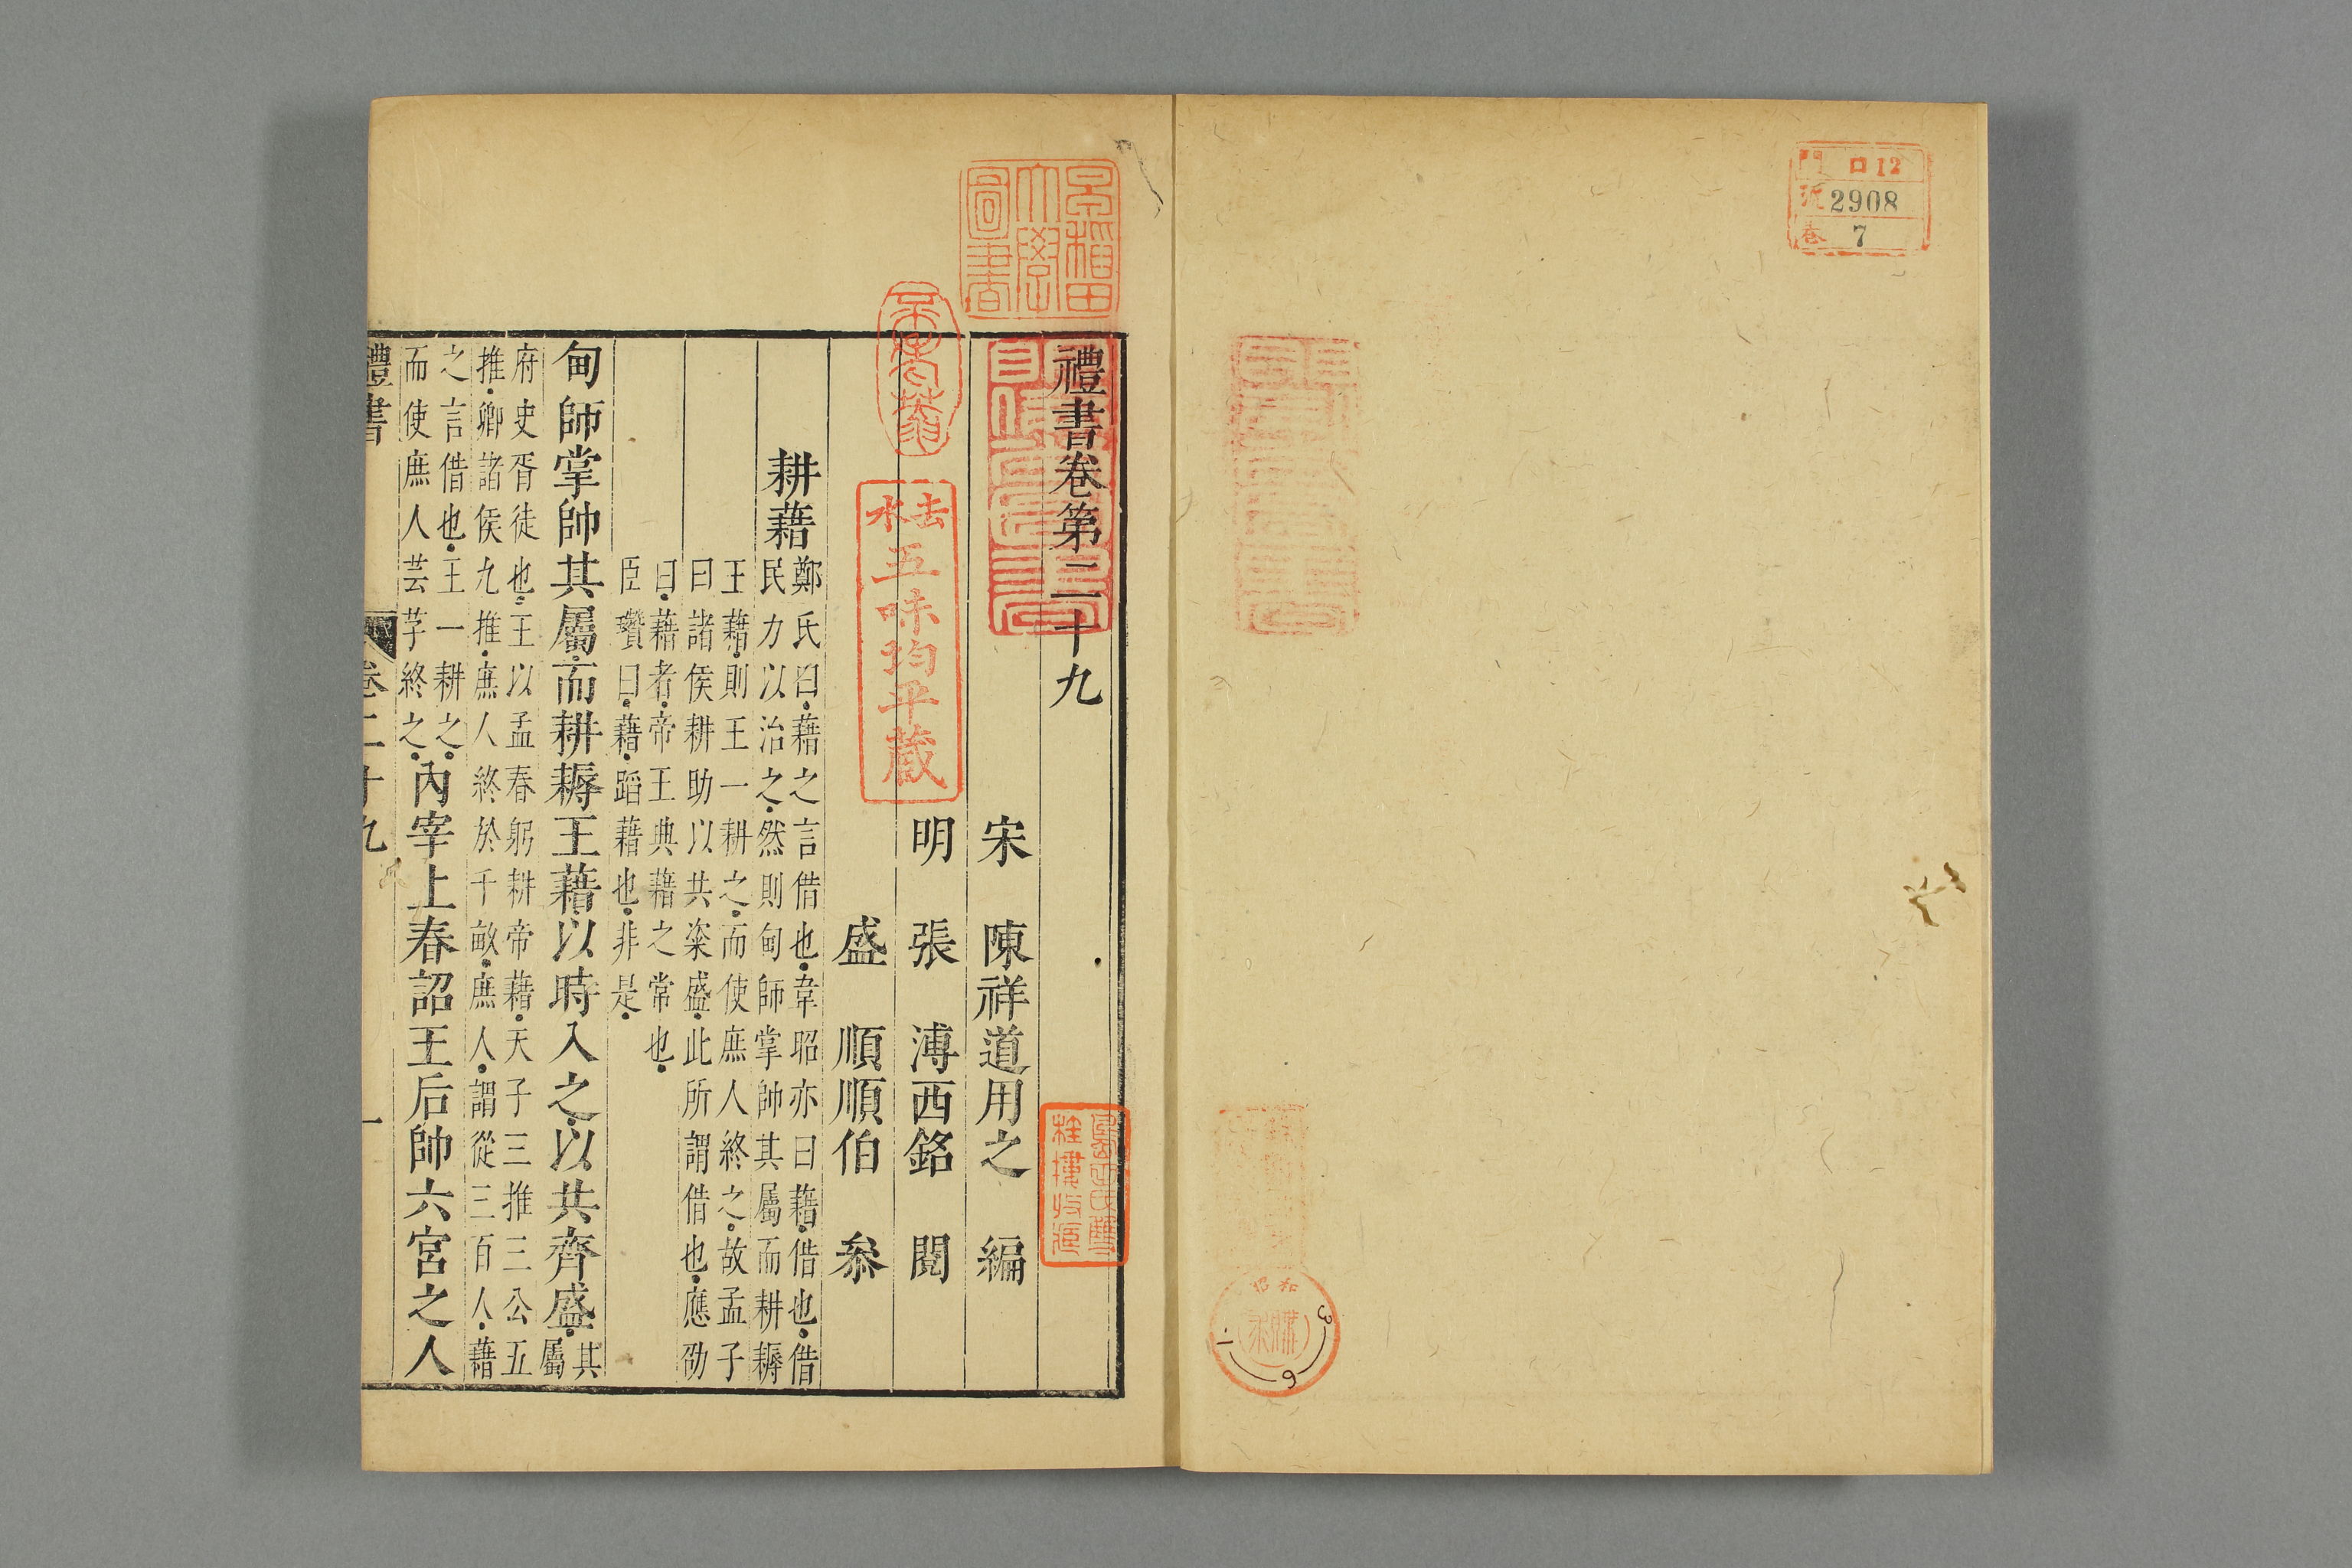 門 口12
号 2908
巻 7
早稲田
大學
圖書
禮書卷第二十九
宋 陳祥道用之 編
明 張 溥西銘 閱
盛 順順伯 叅
去水
五味均平藏
耕藉
鄭氏曰藉之言借也韋昭亦曰藉借也借
民力以治之然則甸師掌帥其屬而耕耨
王藉則王一耕之而使庶人終之故孟子
曰諸侯耕助以共粢盛此所謂借也應劭
曰藉者帝王典藉之常也
臣瓚曰藉蹈藉也非是
甸師掌帥其屬而耕耨王藉以時入之以共齊盛
其
屬
府史胥徒也王以孟春躬耕帝藉天子三推三公五
推卿諸侯九推庶人終於千畝庶人謂從三百人藉
之言借也王一耕之
而使庶人芸芓終之
內宰上春詔王后帥六宮之人
禮書
卷二十九
一